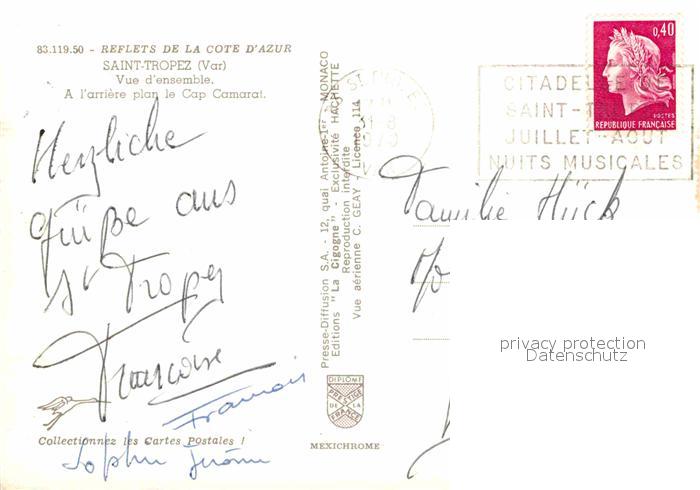 83.119.50 - REFLETS DE LA COTE D'AZUR
SAINT-TROPEZ (Var)
Vue d'ensemble.
A l'arrière plan le Cap Camarat.
Herzliche
Grüße aus
St Tropez
Françoise
François
Sophie Jérôme
Collectionnez les Cartes Postales !
Presse-Diffusion S.A. - 12, quai Antoine-1er - MONACO
Editions "La Cigogne" - Exclusivité HACHETTE
Reproduction interdite
Vue aérienne C. GEAY - Licence 114
DIPLOME
PRESTIGE
DE LA
FRANCE
MEXICHROME
0,40
POSTES
REPUBLIQUE FRANÇAISE
CITADELLE DE
SAINT-TROPEZ
JUILLET-AOUT
NUITS MUSICALES
Familie Hück
c/o
privacy protection
Datenschutz